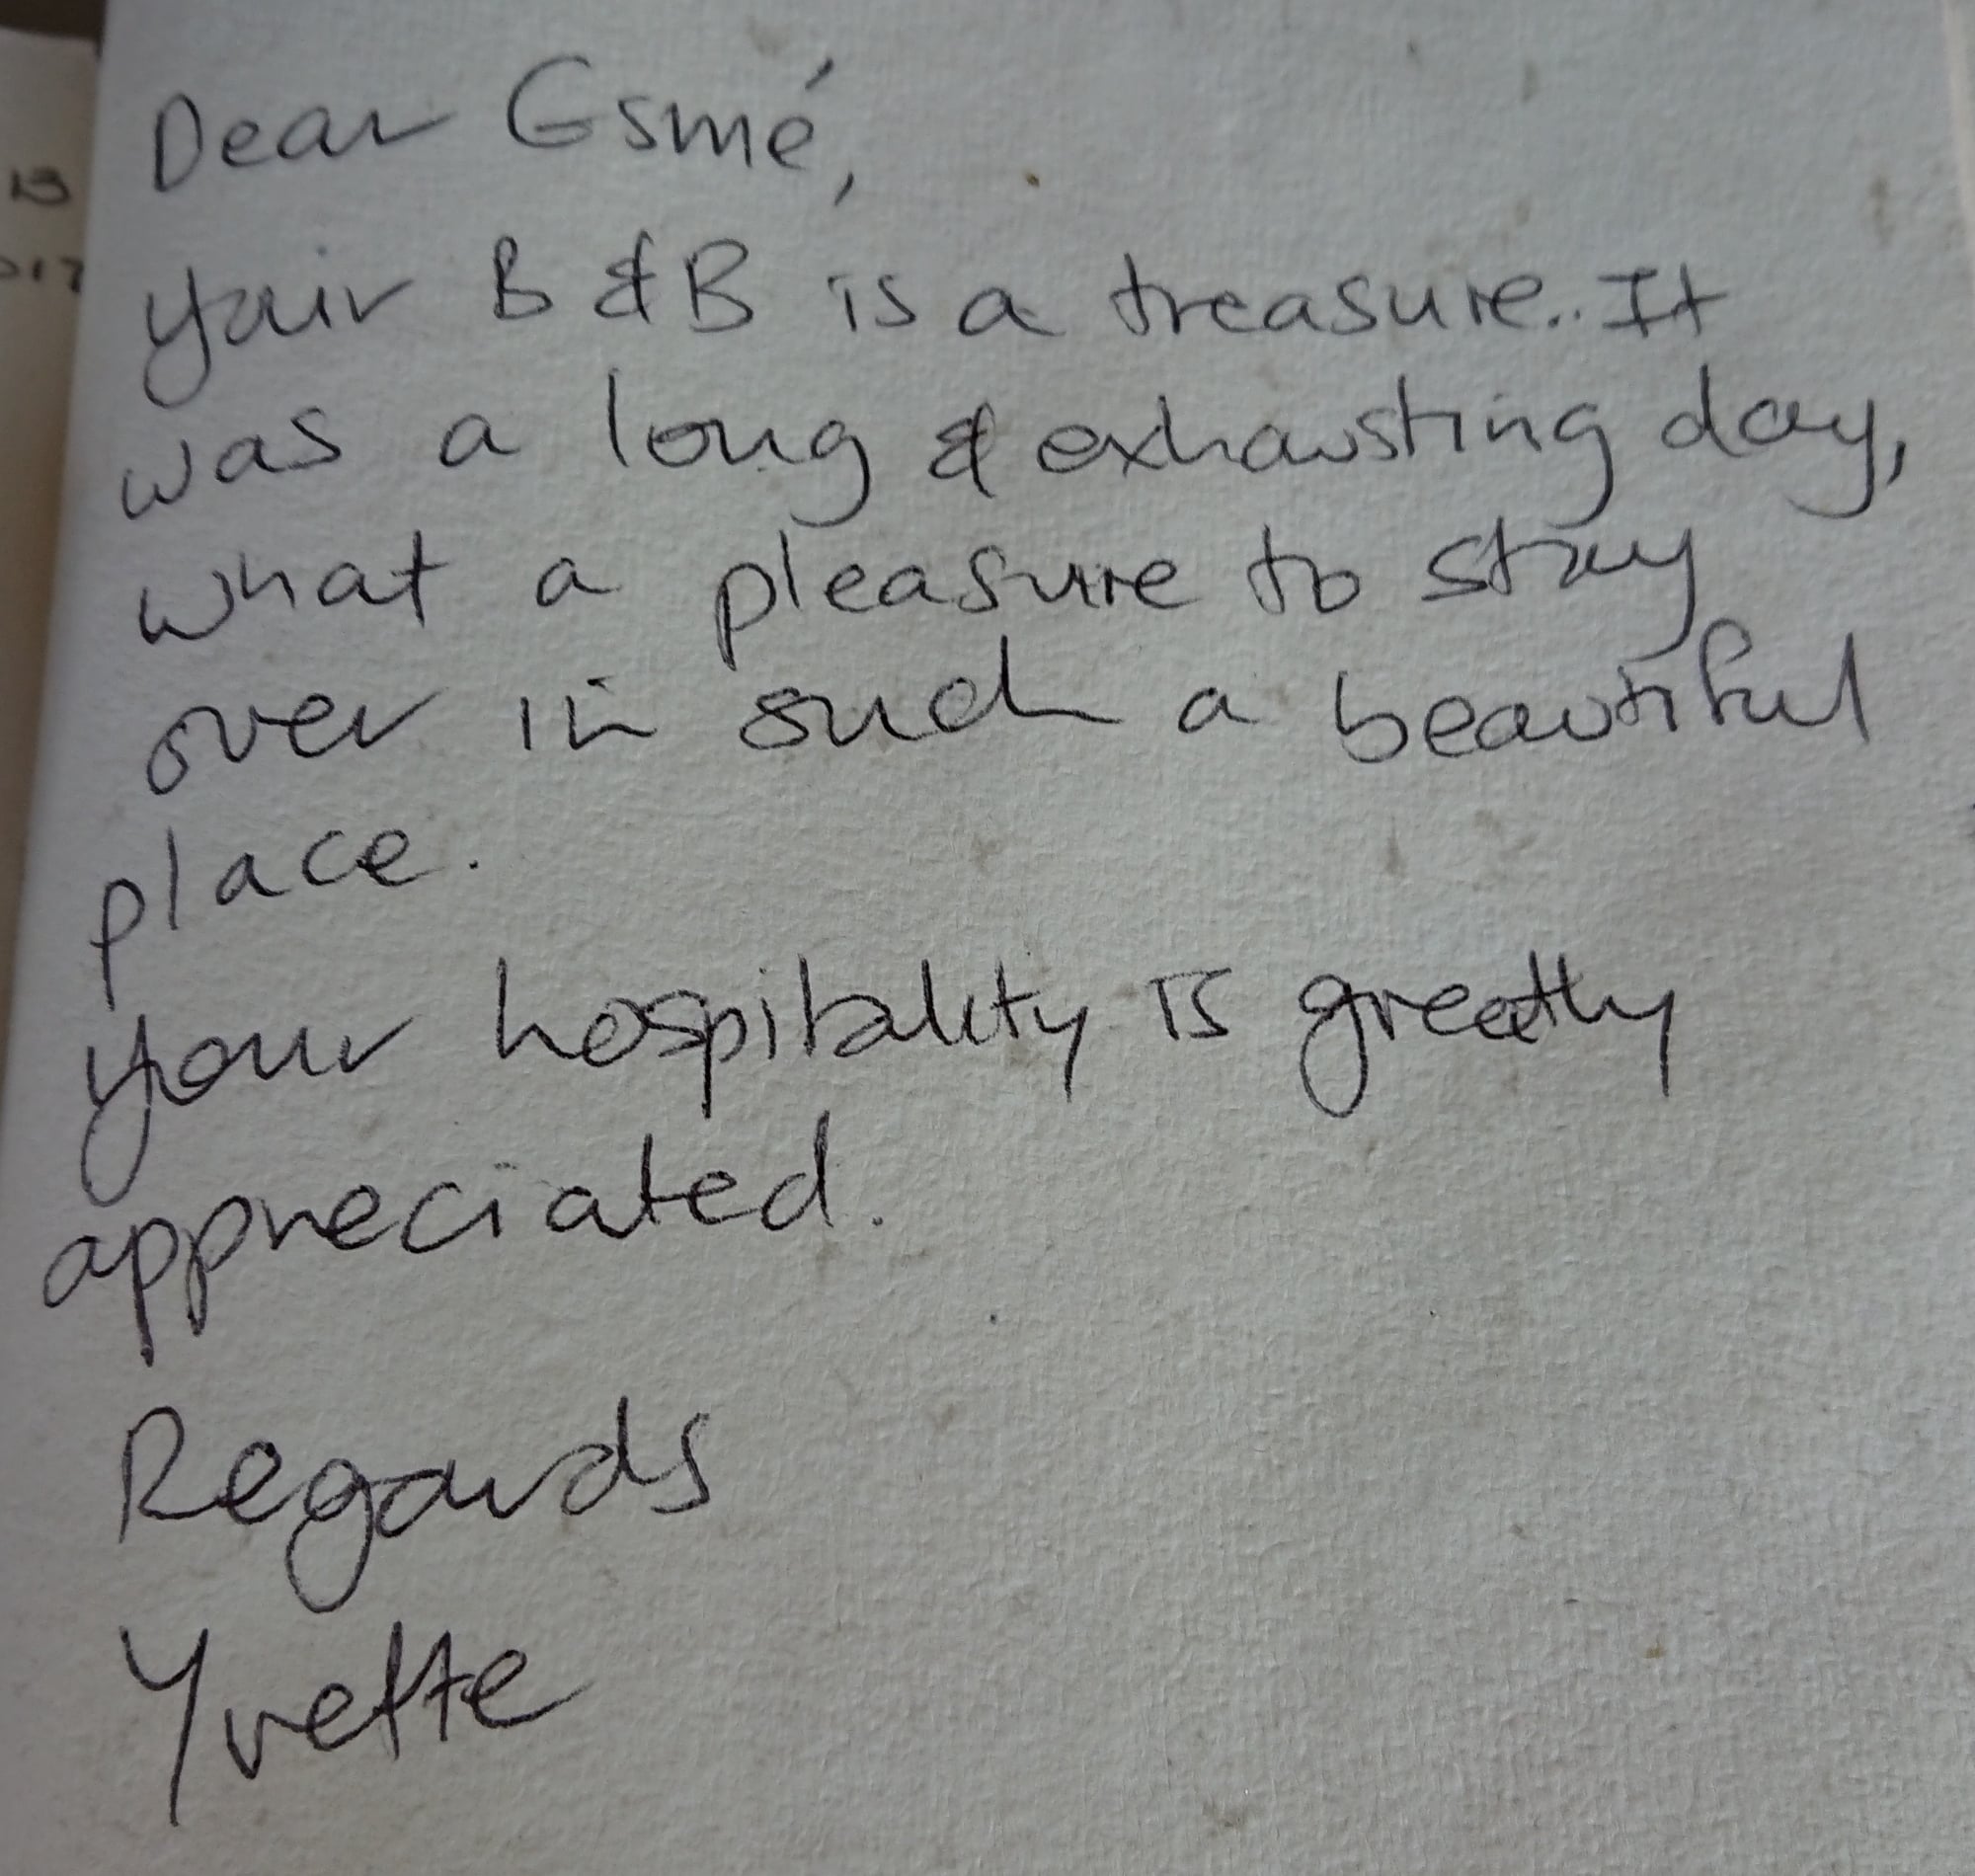 Dear Esmé,
your B & B is a treasure.. It
was a long & exhausting day,
what a pleasure to stay
over in such a beautiful
place.
your hospitality is greatly
appreciated.
Regards
Yvette